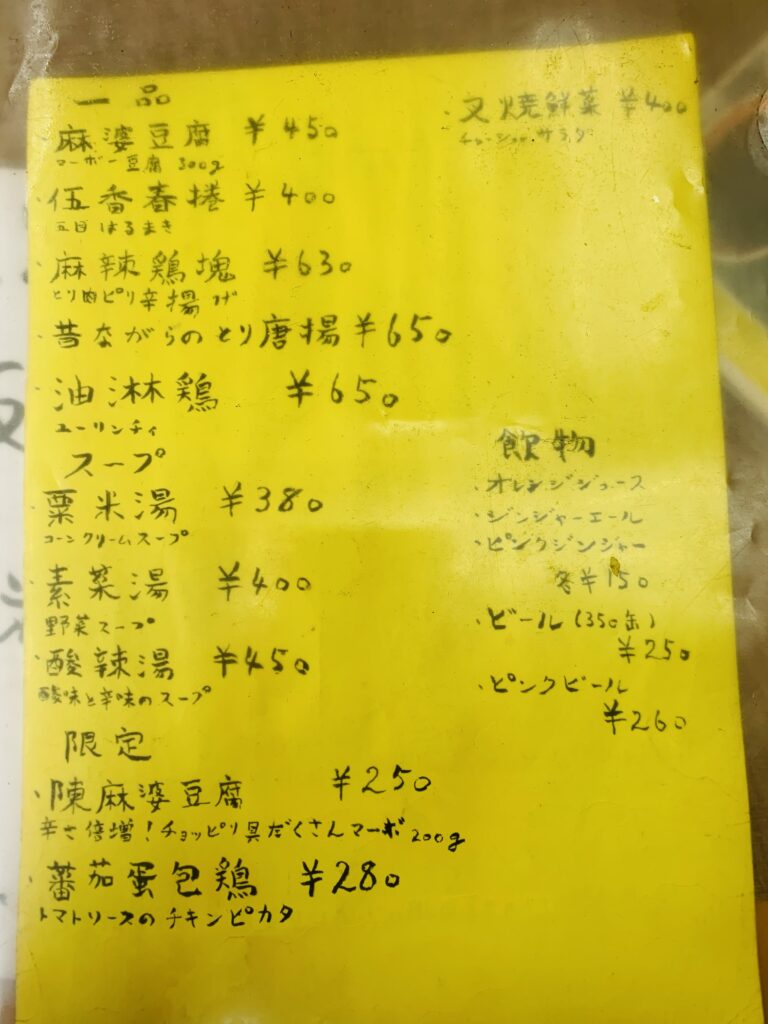 一品
麻婆豆腐 ¥450
マーボー豆腐 300g
・伍番春捲 ¥400
五目はるまき
・麻辣鶏塊 ¥630
とり肉ピリ辛揚げ
・昔ながらのとり唐揚 ¥650
・油淋鶏 ¥650
ユーリンチィ
スープ
・粟米湯 ¥380
コーンクリームスープ
・素菜湯 ¥400
野菜スープ
・酸辣湯 ¥450
酸味と辛味のスープ
限定
・陳麻婆豆腐 ¥250
辛さ倍増!チョッピリ具だくさんマーボ 200g
・蕃茄蛋包鶏 ¥280
トマトソースのチキンピカタ
・叉焼鮮菜 ¥400
チャーシューサラダ
飲物
・オレンジジュース
・ジンジャーエール
・ピンクジンジャー
各¥150
・ビール(350缶)
¥250
・ピンクビール
¥260